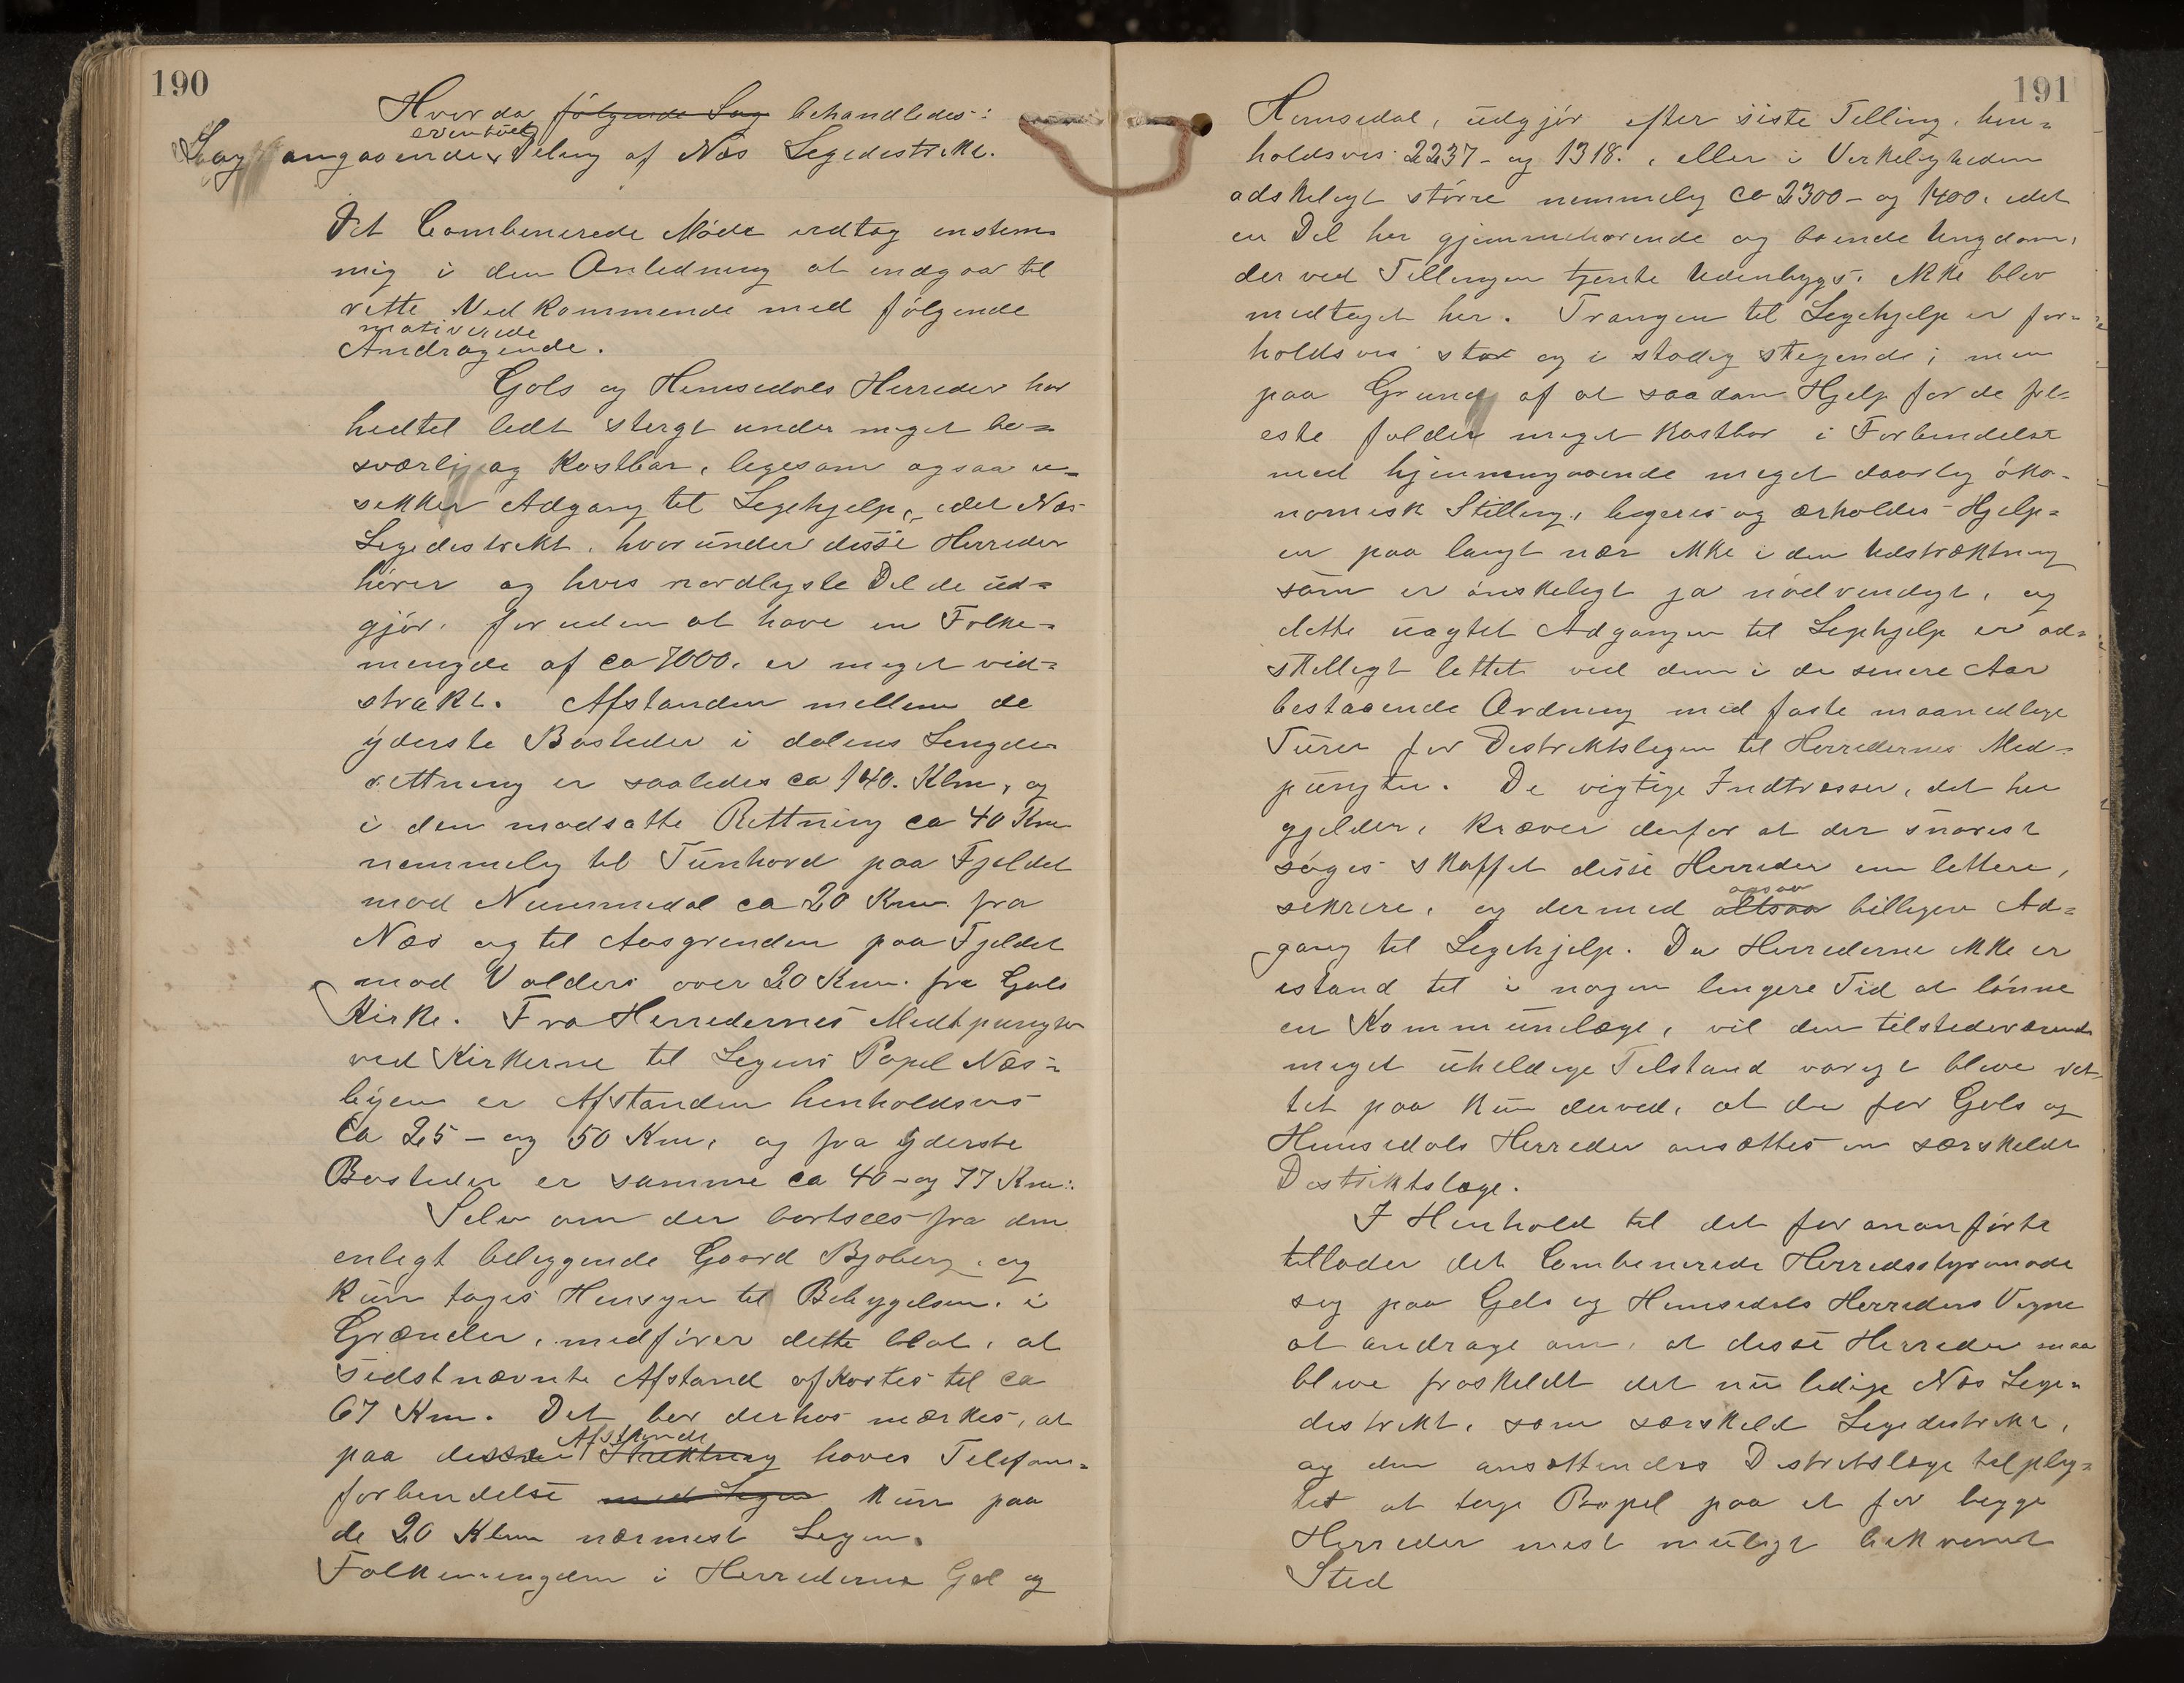 190
Hvor da følgende Sag behandledes:
eventuelt
Sag angaaende Deling af Næs Legedestrikt.
Det Combenerede Møde vedtog enstem-
mig i den Anledning at indgaa til
rette Vedkommende med følgende
motiverede
Andragende.
Gols og Hemsedals Herreder har
hedtel ledt stergt under meget be=
sværlig og Kostbar, legesom ogsaa u=
sekker Adgang tel Legehjelp, idet Næs
Legedestrikt, hvorunder disse Herreder
hører og hvis nordligste Del de ud=
gjør, foruden at have en Folke=
mengde af ca 7000, er meget vid=
strakt. Afstanden mellem de
yderste Bosteder i dalens Lengde-
rettning er saaledes ca 140. Klm, og
i den modsatte Rettning ca 40 Km
nemmelig tel Tunhovd paa Fjeldet
mod Nummedal ca 20 Km. fra
Næs og tel Aasgrenden paa Fjeldet
mod Valders over 20 Km. fra Gols
Kirke. Fra Herredernes Medtpungter
ved Kirkerne tel Legens Bopel Næs=
byen er Afstanden henholdsves
ca 25 - og 50 Km, og fra yderste
Bosteder er samme ca 40 - og 77 Km.
Selv om der bortsees fra den
enlegt beleggende Gaard Bjøberg, og
kun tages Hensyn tel Bebyggelsen i
Grænder, medfører dette blot, at
sidstnævnte Afstand afkortes tel ca
67 Km. Det bør derhos mærkes, at
Afstande
paa desse Strektning haves Telefon=
forbendelse med Legen kun paa
de 20 Klm nærmest Legen.
Folkemengden i Herrederne Gol og
191
Hemsedal, udgjør efter siste Telling, hen=
holdsves 2237 - og 1318. , eller i Verkeligheden
adskeligt større nemmelig ca 2300 - og 1400, idet
en Del her hjemmehørende og boende Ungdom,
der ved Tellingen tjente Udenbygs, ikke blev
medtaget her. Trangen tel Legehjelp er for-
holdsves stor og i stadig stegende; men
paa Grund af at saadan Hjelp for de fle
este falder meget Kostbar i Forbendelse
med hjemmegaaende meget daarlig øko-
nomisk Stilling, begeres og erholdes Hjelp=
en paa langt nær ikke i den Udstrækning
som er ønskeligt ja nødvendigt, og
dette uagtet Adgangen tel Legehjelp er ad=
skelligt lettet ved den i de senere Aar
bestaaende Ordning med faste maanedlige
Turer for Destriktslegen tel Herredernes Med=
pungter. De vigtige Indtresser, det her
gjelder, kræver derfor at der snarest
søges skaffet disse Herreder en lettere,
ogsaa
sekrere, og dermed altsaa billigere Ad=
gang tel Legehjelp. Da Herrederne ikke er
istand tel i nogen lengere Tid at lønne
en Kommunelæge, vil den tilstedeværende
meget uheldige Telstand varigt bleve ret-
tet paa kun derved, at der for Gols og
Hemsedals Herreder ansættes en særskeldt
Destriktslæge.
I Henhold tel det forananførte
tellader det Combenerede Herredsstyremøde
seg paa Gols og Hemsedals Herreders Vegne
at andrage om, at desse Herreder maa
bleve fraskeldt det nu ledige Næs Lege=
destrekt, som særskeld Legedestrikt,
og den ansættendes Destriktslæge telpleg=
tet at tage Bopel paa et for begge
Herreder mest muligt bekvemt
Sted